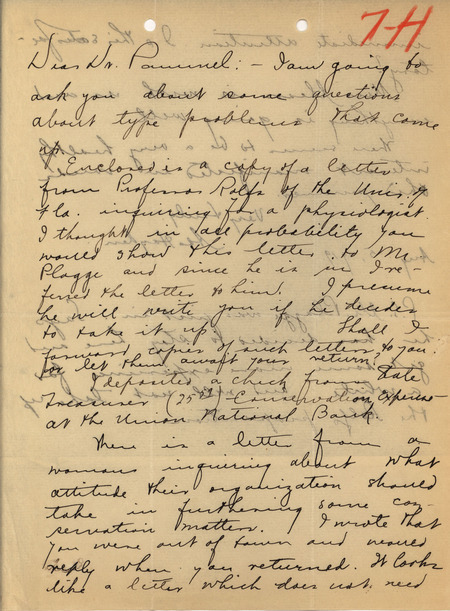 7-H
Dear Dr. Pammel:- I am going to
ask you about some questions
about type problems that come
up.
Enclosed is a copy of a letter
from Professor Rolfs of the Univ. of
Fla. inquiring for a physiologist.
I thought in all probability you
would show this letter to Mr.
Plagge and since he is in I re-
ferred the letter to him. I presume
he will write you if he decides
to take it up. Shall I
forward copies of such letters to you
or let them await your return?
I deposited a check from State
Treasurer (25 - Conservation Expense
at the Union National Bank
There is a letter from a
woman inquiring about what
attitude their organization should
take in furthering some con-
servation matters. I wrote that
you were out of town and would
reply when you returned. It looks
like a letter which does not need